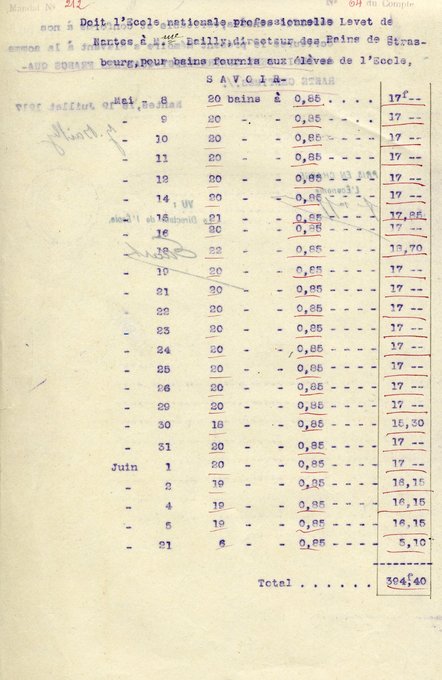 Mandat N° 212 N° 64 du Compte
Doit l'Ecole nationale professionnelle Levet de
Nantes à Mme Bailly, directeur des Bains de Stras-
bourg, pour bains fournis aux élèves de l'Ecole,
SAVOIR-
Mai 8 20 bains à 0,85 .... 17f--
- 9 20 - - 0,85 ---- 17 --
- 10 20 - - 0,85 ---- 17 --
- 11 20 - - 0,85 ---- 17 --
- 12 20 - - 0,85 ---- 17 --
- 14 20 - - 0,85 ---- 17 --
- 15 21 - - 0,85 ---- 17,85
- 16 20 - - 0,85 ---- 17 --
- 18 22 - - 0,85 ---- 18,70
- 19 20 - - 0,85 ---- 17 --
- 21 20 - - 0,85 ---- 17 --
- 22 20 - - 0,85 ---- 17 --
- 23 20 - - 0,85 ---- 17 --
- 24 20 - - 0,85 ---- 17 --
- 25 20 - - 0,85 ---- 17 --
- 26 20 - - 0,85 ---- 17 --
- 29 20 - - 0,85 ---- 17 --
- 30 18 - - 0,85 ---- 15,30
- 31 20 - - 0,85 ---- 17 --
Juin 1 20 - - 0,85 ---- 17 --
- 2 19 - - 0,85 ---- 16,15
- 4 19 - - 0,85 ---- 16,15
- 5 19 - - 0,85 ---- 16,15
- 21 6 - - 0,85 ---- 5,10
Total ...... 394f,40